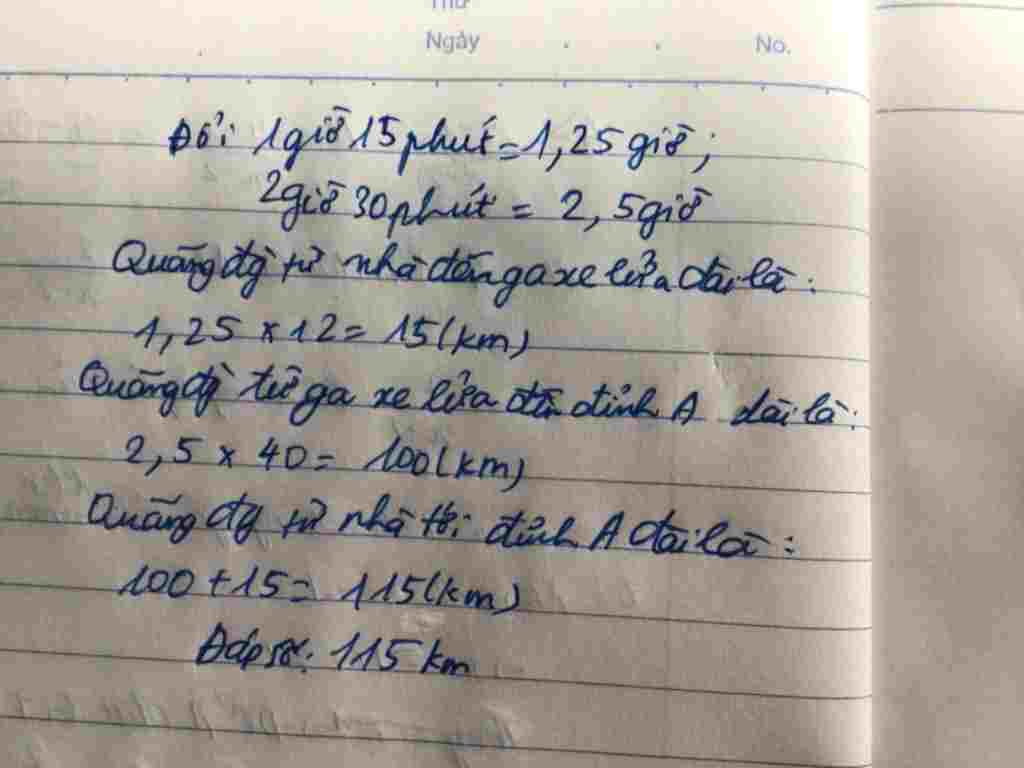 Thứ
Ngày
No.
Đổi: 1giờ 15phút = 1,25giờ;
2giờ 30phút = 2,5giờ
Quãng đg từ nhà đến ga xe lửa dài là:
1,25 x 12 = 15(km)
Quãng đg từ ga xe lửa đến đỉnh A dài là:
2,5 x 40 = 100(km)
Quãng đg từ nhà tới đỉnh A dài là:
100 + 15 = 115(km)
Đáp số: 115 km